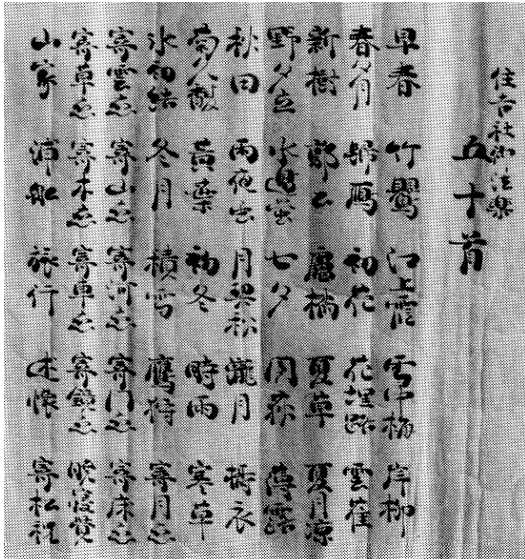 住吉社御法楽
五十首
早春 竹鶯 江上霞 雪中梅 岸柳
春夕月 帰鴈 初花 花埋路 雲雀
新樹 郭公 廬橘 夏草 夏月涼
野夕立 水辺蛍 七夕 閑萩 薄露
秋田 雨夜虫 瀧月 擣衣
菊久馥 黄葉 初冬 時雨 寒草
氷初結 冬月 積雪 鷹狩 寄月恋
寄雲恋 寄山恋 寄河恋 寄門恋 寄床恋
寄草恋 寄木恋 寄車恋 寄鏡恋 暁寝覚
山家 浦船 旅行 述懐 寄松祝